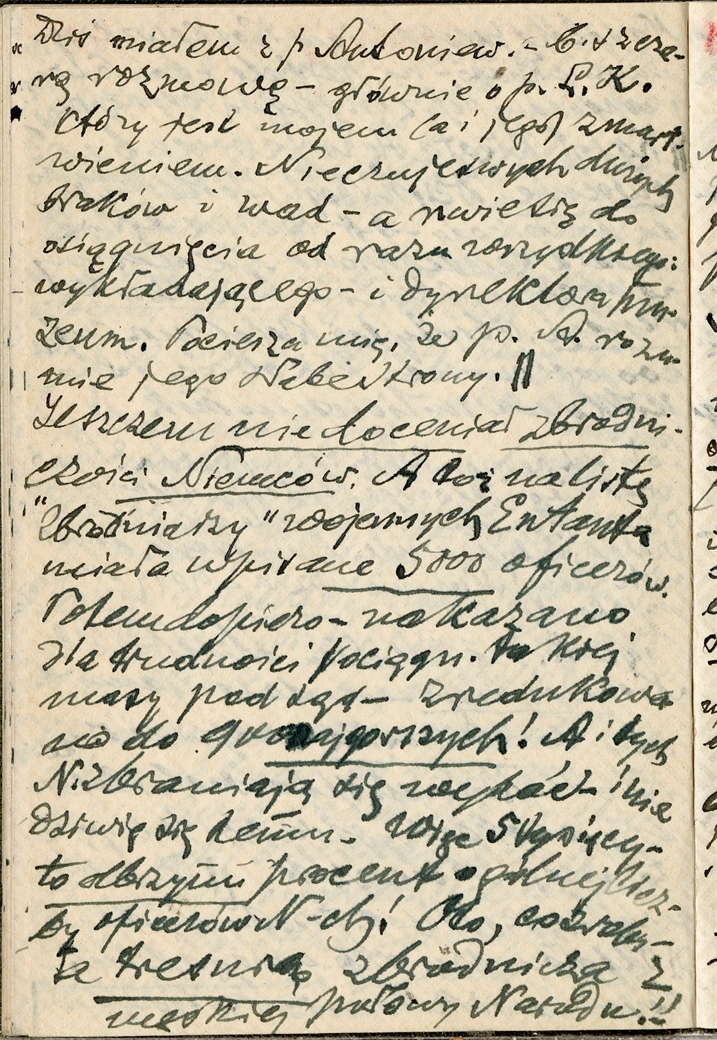 Dziś miałem z p. Antoniew. - b. szcze-
rą rozmowę - głównie o p. L. K.
który jest mojem (a i jego) zmart-
wieniem. Nie czuje swych dużych
braków i wad - a rwie się do
osiągnięcia od razu
wykładającego - i dyrektora mu-
zeum. Pociesza mię, że p. A. rozu-
mie jego słabe strony. ||
Jeszczem nie doceniał zbrodni-
czości Niemców. A toż na listę
"zbrodniarzy" wojennych Entanta
miała wpisane 5000 oficerów.
Potem dopiero - nakazano
dla trudności pociągn. takiej
masy pod sąd - zredukowa-
no do 900 najgorszych! A i tych
N. zbraniają się wydać - i nie
dziwię się temu. Więc 5 tysięcy -
to olbrzymi procent ogólnej licz-
by oficerów N-ch! Oto, co zrobi-
ła tresura zbrodnicza z
męskiej połowy Narodu!!